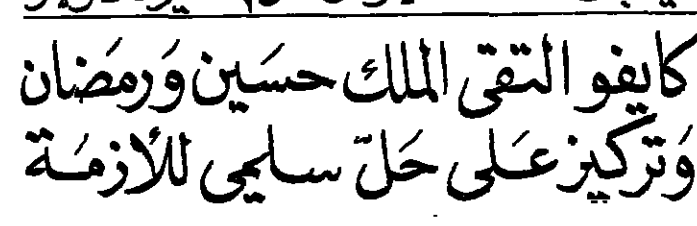 كايفو التقى الملك حسَين وَرمَضان
وَتركيز عَلى حَلّ سلمي للأزمَة